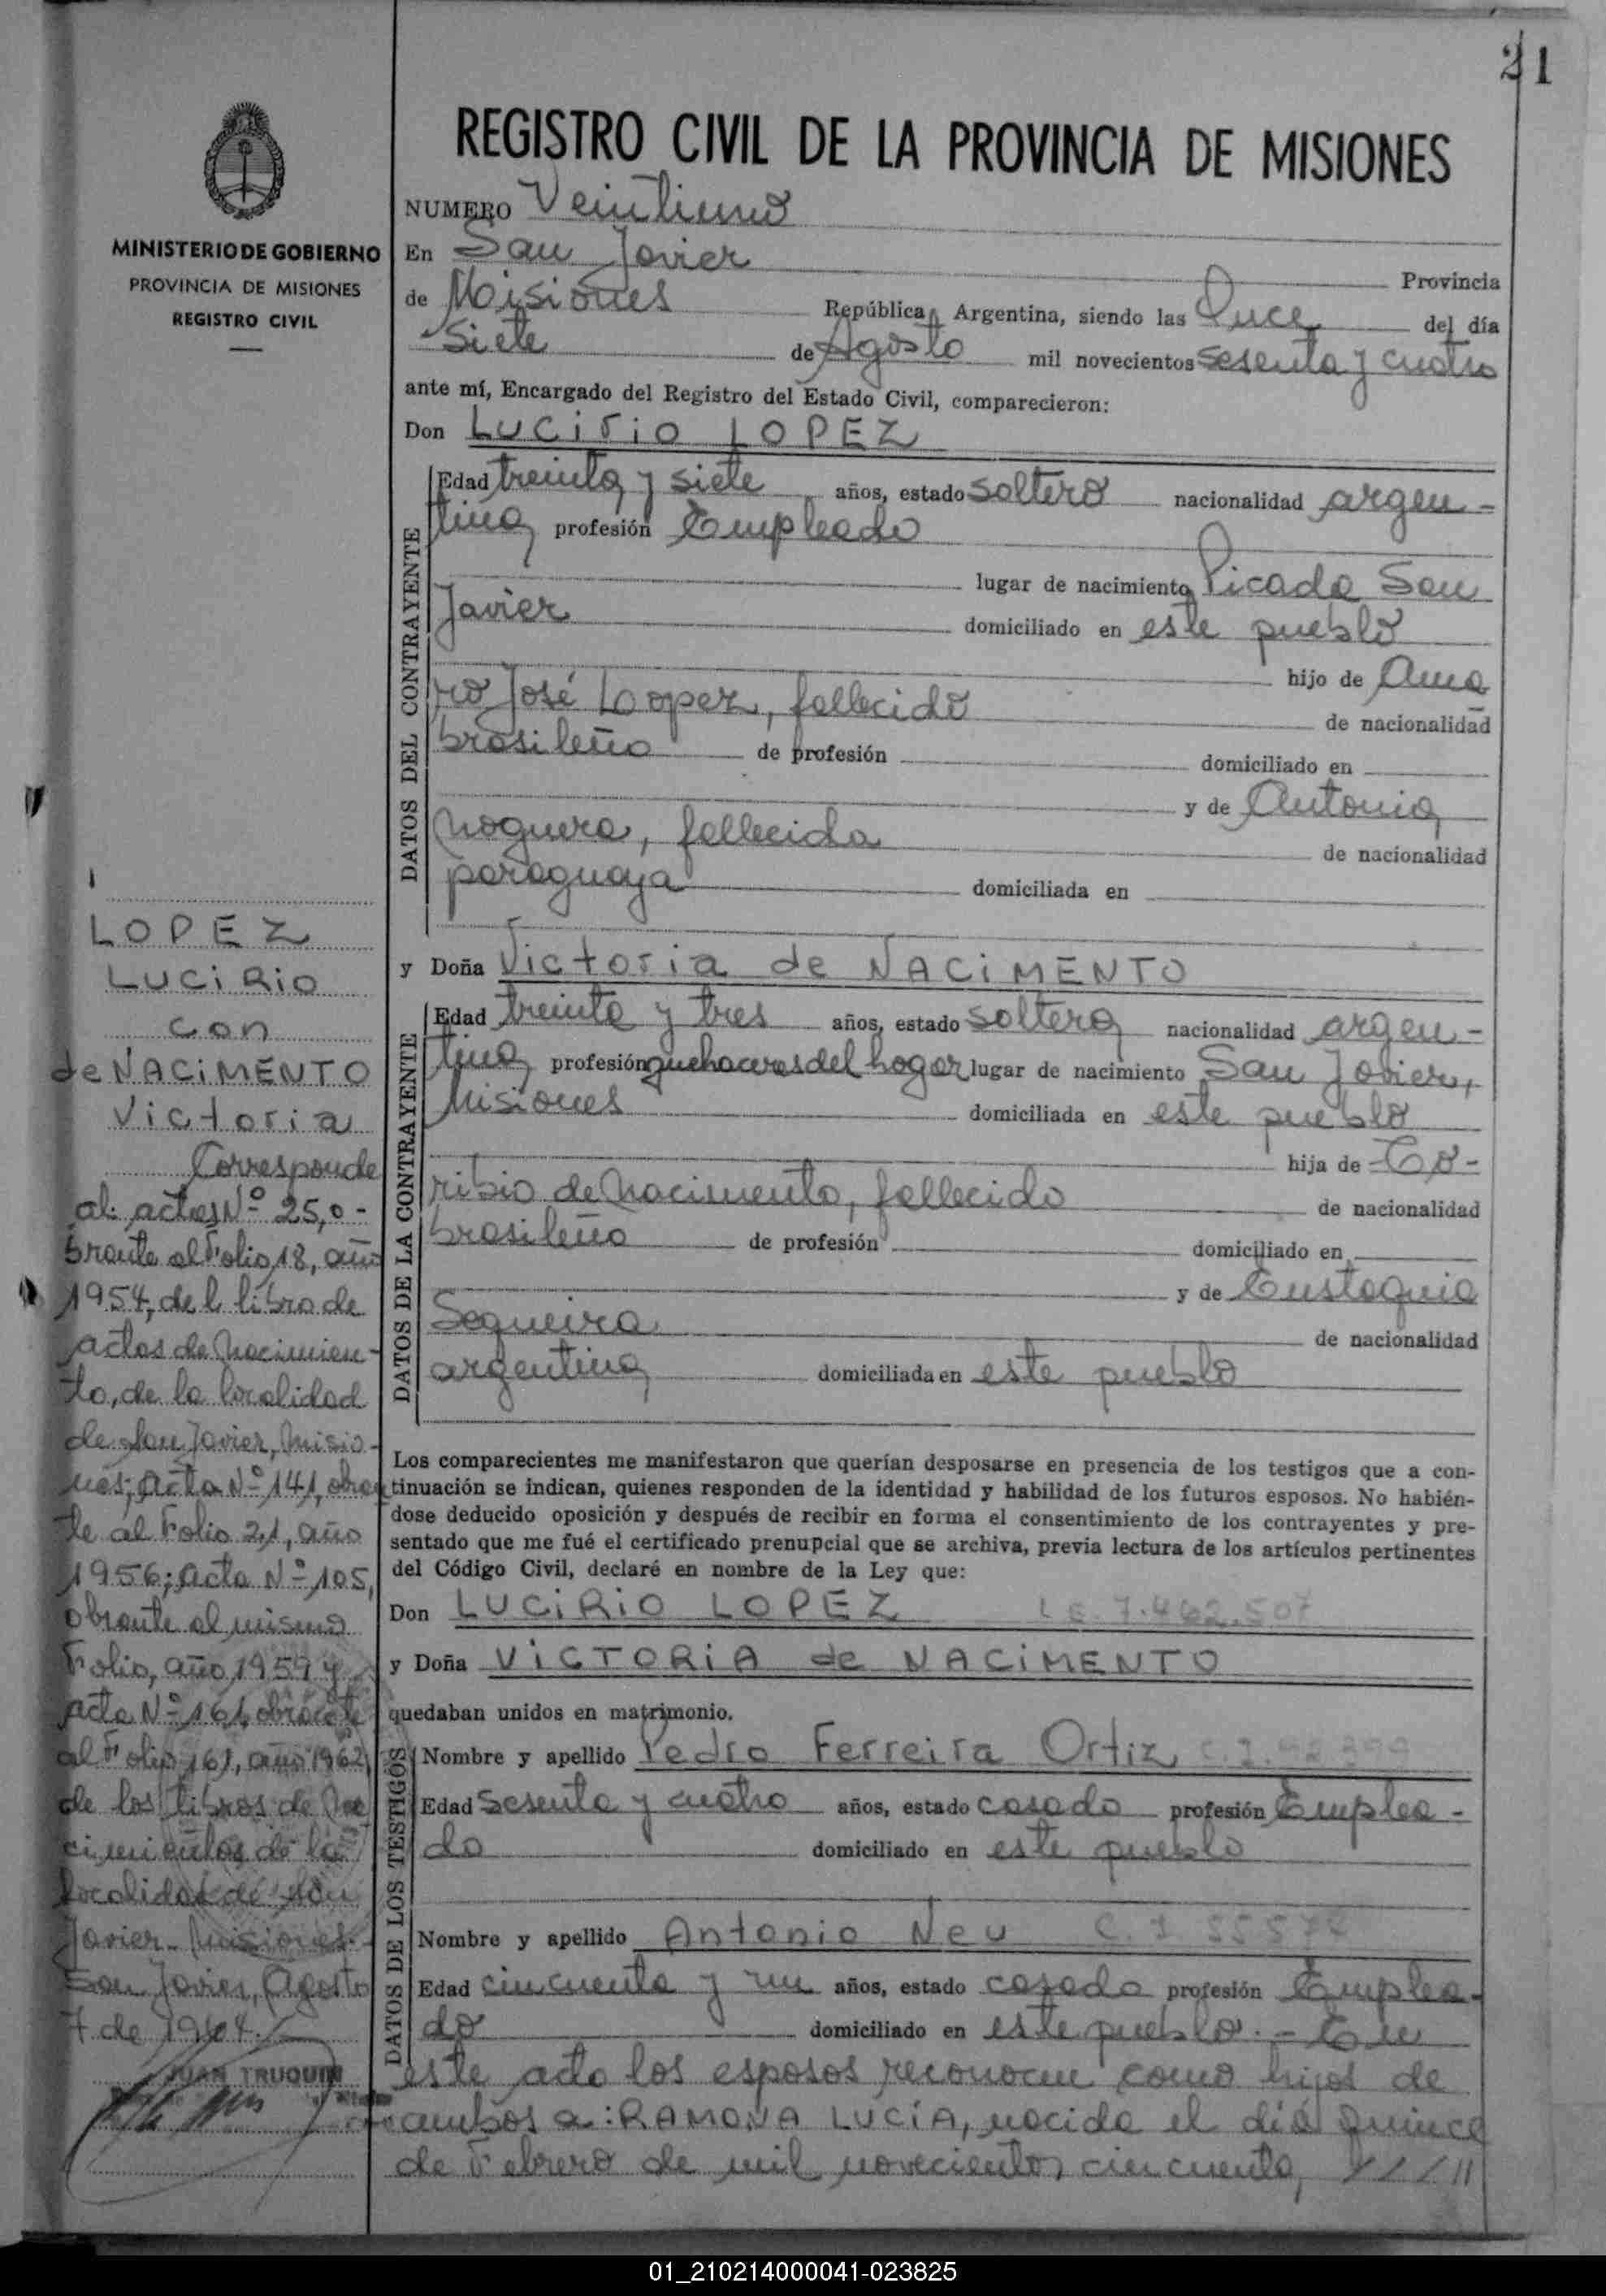 21
REGISTRO CIVIL DE LA PROVINCIA DE MISIONES
MINISTERIO DE GOBIERNO
PROVINCIA DE MISIONES
REGISTRO CIVIL
NUMERO Veintiuno
En San Javier Provincia
de Misiones República Argentina, siendo las Once del día
Siete de Agosto mil novecientos sesenta y cuatro
ante mí, Encargado del Registro del Estado Civil, comparecieron:
Don LUCIRIO LOPEZ
DATOS DEL CONTRAYENTE
Edad treinta y siete años, estado soltero nacionalidad argen-
tina profesión Empleado
lugar de nacimiento Picada San
Javier domiciliado en este pueblo
hijo de Ama
ro José Loopez, fallecido de nacionalidad
brasileño de profesión domiciliado en
y de Antonia
Noguera, fallecida de nacionalidad
paraguaya domiciliada en
y Doña Victoria de NACIMENTO
DATOS DE LA CONTRAYENTE
Edad treinta y tres años, estado soltera nacionalidad argen-
tina profesión quehaceres del hogar lugar de nacimiento San Javier,
Misiones domiciliada en este pueblo
hija de To-
ribio de Nacimento, fallecido de nacionalidad
brasileño de profesión domiciliado en
y de Eustaquia
Sequeira de nacionalidad
argentina domiciliada en este pueblo
Los comparecientes me manifestaron que querían desposarse en presencia de los testigos que a con-
tinuación se indican, quienes responden de la identidad y habilidad de los futuros esposos. No habién-
dose deducido oposición y después de recibir en forma el consentimiento de los contrayentes y pre-
sentado que me fué el certificado prenupcial que se archiva, previa lectura de los artículos pertinentes
del Código Civil, declaré en nombre de la Ley que:
Don LUCIRIO LOPEZ L E. 7.462.507
y Doña VICTORIA de NACIMENTO
quedaban unidos en matrimonio.
DATOS DE LOS TESTIGOS
Nombre y apellido Pedro Ferreira Ortiz
Edad sesenta y cuatro años, estado casado profesión Emplea-
do domiciliado en este pueblo
Nombre y apellido Antonio Neu C. I
Edad cincuenta y un años, estado casado profesión Emplea-
do domiciliado en este pueblo.- En
este acto los esposos reconocen como hijos de
ambos a: RAMONA LUCIA, nacida el día quince
de Febrero de mil novecientos cincuenta,
LOPEZ
LUCIRIO
con
de NACIMENTO
Victoria
Corresponde
al actas Nº 25, o-
brante al Folio 18, año
1954, del libro de
actas de Nacimien-
to, de la localidad
de San Javier, Misio-
nes; Acta Nº 141, obran
te al Folio 21, año
1956; acta Nº 105,
obrante al mismo
Folio, año 1959 y
acta Nº 161, obrante
al Folio 161, año 1962,
de los libros de Na
cimientos de la
localidad de San
Javier- Misiones.-
San Javier, Agosto
7 de 1964.
JUAN TRUQUIN
01_210214000041-023825